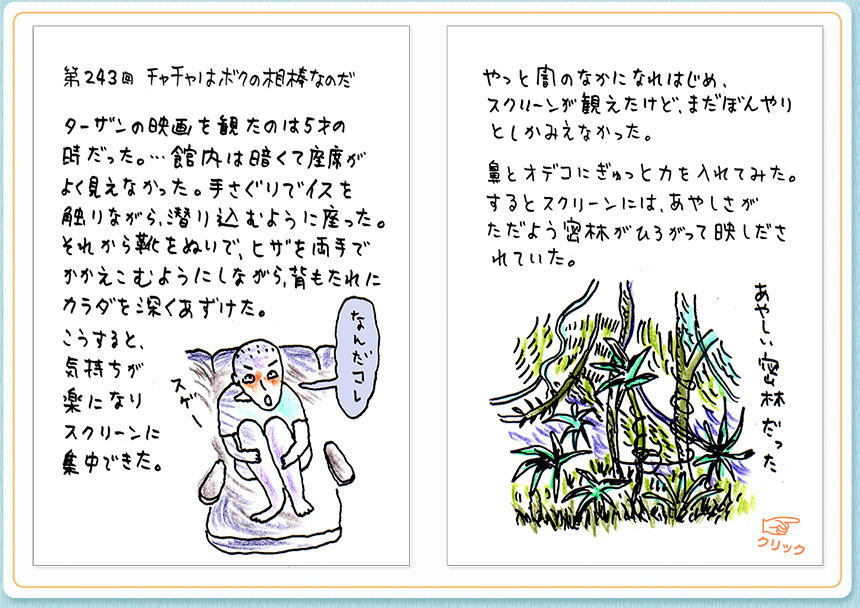 第243回 チャチャはボクの相棒なのだ
ターザンの映画を観たのは5才の
時だった。…館内は暗くて座席が
よく見えなかった。手さぐりでイスを
触りながら、潜り込むように座った。
それから靴をぬいで、ヒザを両手で
かかえこむようにしながら、背もたれに
カラダを深くあずけた。
こうすると、
気持ちが
楽になり
スクリーンに
集中できた。
スゲー
なんだコレ
やっと闇のなかになれはじめ、
スクリーンが観えたけど、まだぼんやり
としかみえなかった。
鼻とオデコにぎゅっと力を入れてみた。
するとスクリーンには、あやしさが
ただよう密林がひろがって映しださ
れていた。
あやしい密林だった
クリック